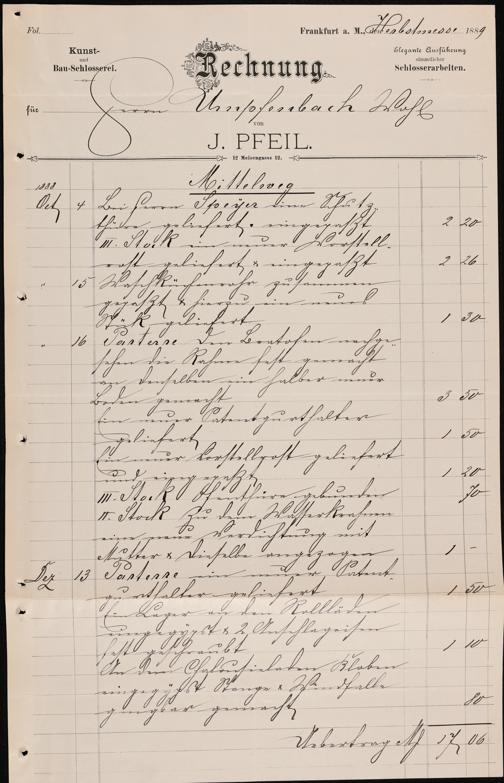 Fol.
Frankfurt a. M., Herbstmesse 1889
Kunst-
und
Bau-Schlosserei.
Rechnung.
Elegante Ausführung
sämmtlicher
Schlosserarbeiten.
für Herrn Umpfenbach Wohl
von
J. PFEIL.
12 Meisengasse 12.
Mittelweg
1888
Oct 4 Bei Herrn Speyer eine Schutz
thüre geliefert & eingepaßt 2 20
III. Stock ein neuer Vorstell-
rost geliefert & eingepaßt 2 26
" 15 Waschküchenrohr zusammen
gepaßt & hierzu ein neues
Stück geliefert 1 30
" 16 Parterre Den Bratofen nachge-
sehen die Rahm fest gemacht
an denselben ein halber neuer
Boden gemacht 3 50
Ein neuer Patentgurthalter
geliefert 1 50
Ein neuer Vorstellrost geliefert
und eingepaßt 1 20
III. Stock Ofenthüre gebunden 70
II. Stock Zu dem Wasserkrahnen
eine neue Verdichtung mit
Mutter & Dieselbe angezogen 1 -
Dez 13 Parterre ein neuer Patent-
gurthalter geliefert 1 50
Ein Lager an den Rollläden
eingegypst & 2 Anschlageisen
fest geschraubt 1 10
An dem Chalousieladen Kloben
eingegypst Stange & Windfalle
gangbar gemacht 80
Uebertrag M 17 06